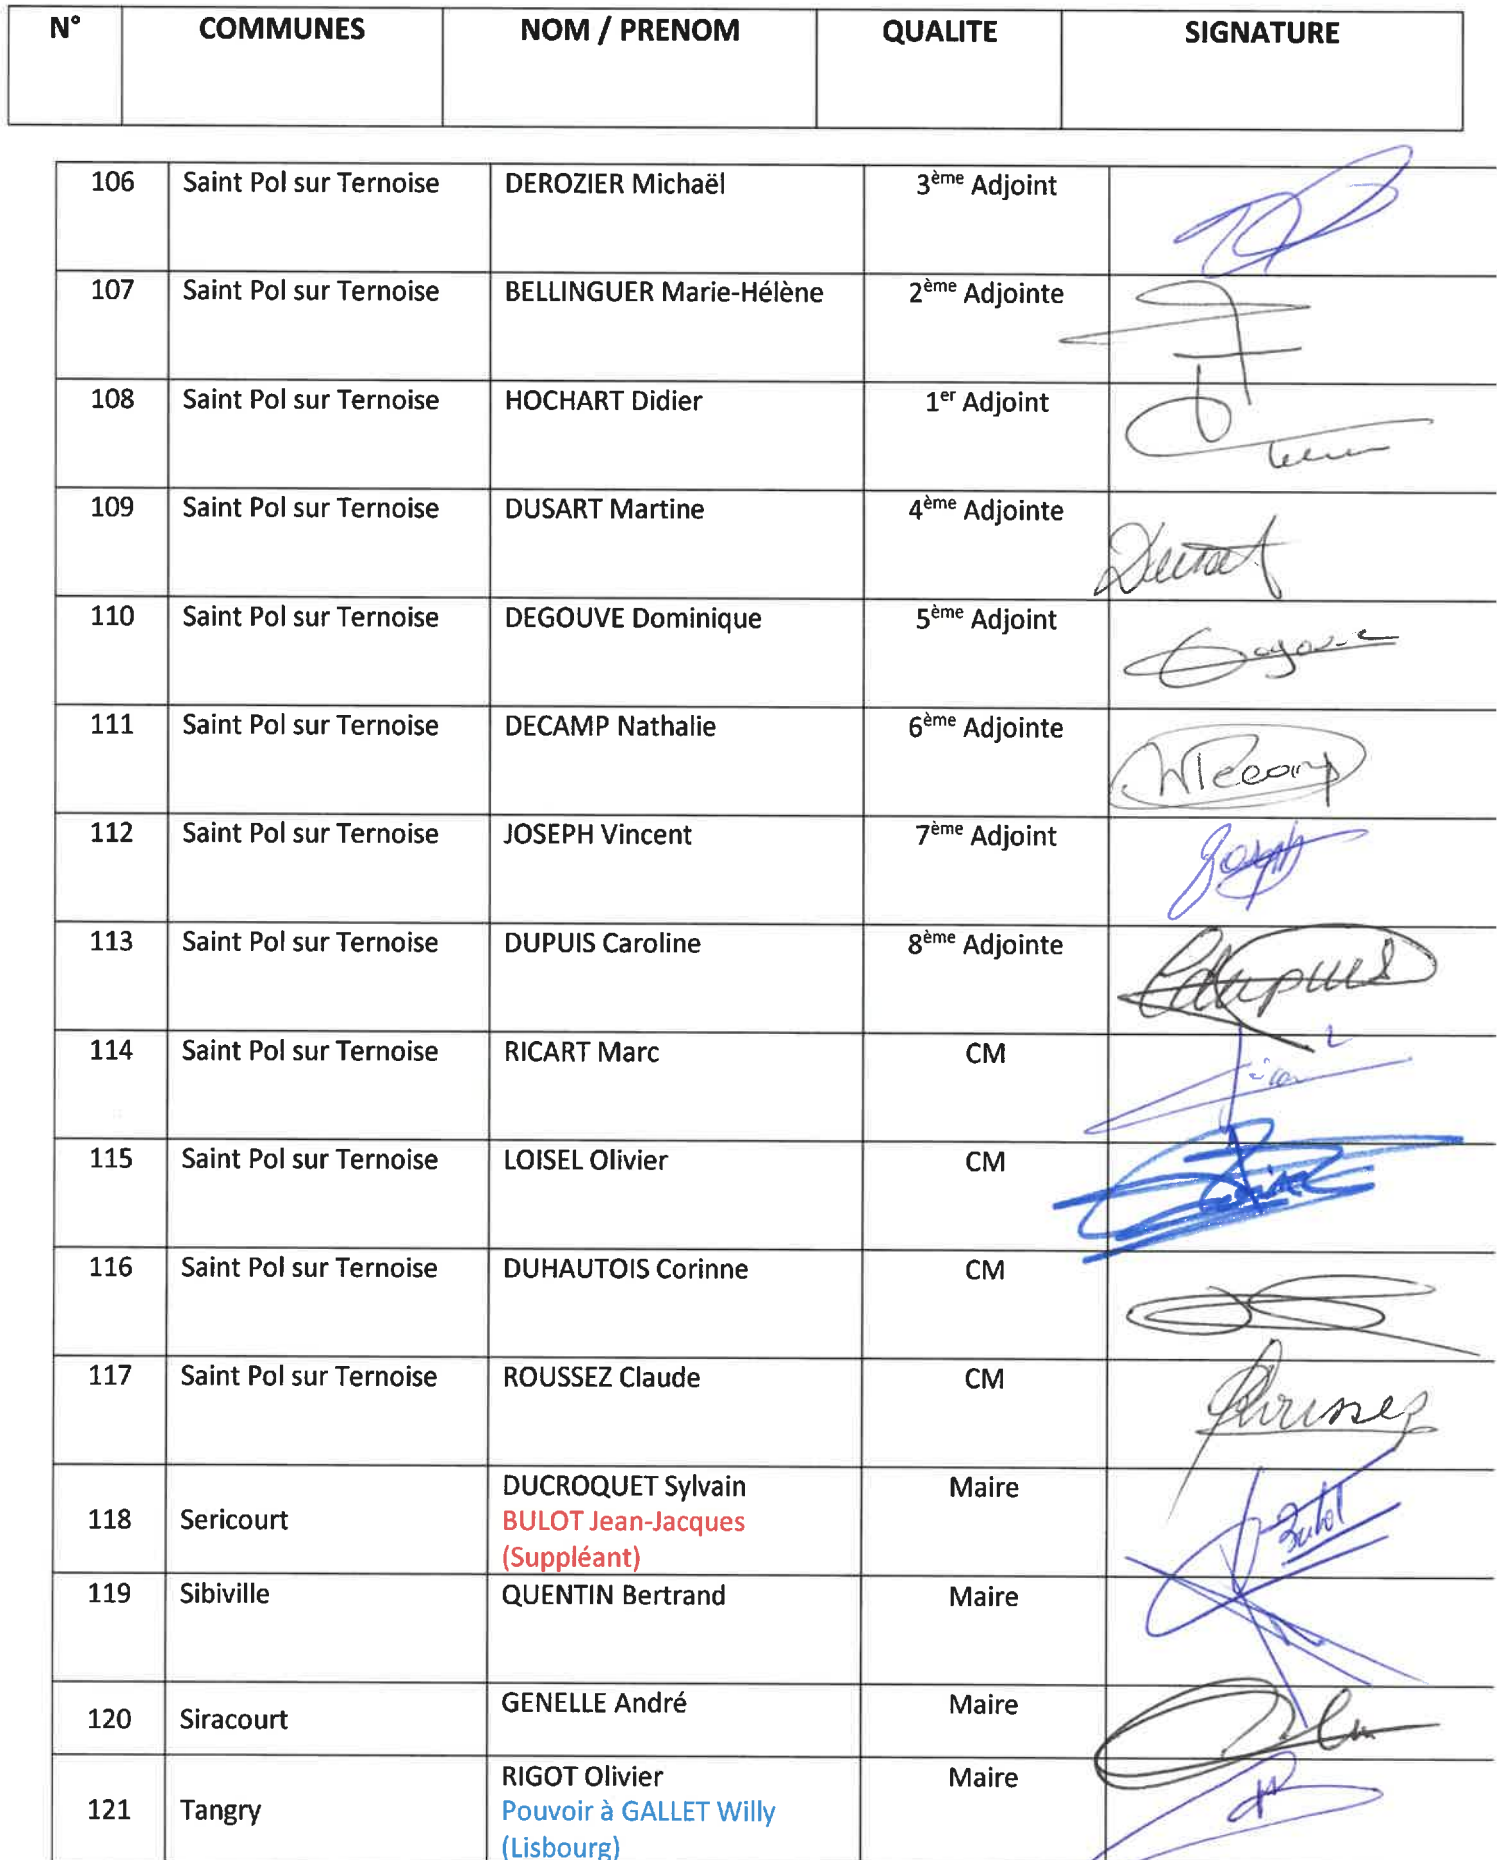 N° COMMUNES NOM / PRENOM QUALITE SIGNATURE
106 Saint Pol sur Ternoise DEROZIER Michaël 3ème Adjoint
107 Saint Pol sur Ternoise BELLINGUER Marie-Hélène 2ème Adjointe
108 Saint Pol sur Ternoise HOCHART Didier 1er Adjoint
109 Saint Pol sur Ternoise DUSART Martine 4ème Adjointe
110 Saint Pol sur Ternoise DEGOUVE Dominique 5ème Adjoint
111 Saint Pol sur Ternoise DECAMP Nathalie 6ème Adjointe
112 Saint Pol sur Ternoise JOSEPH Vincent 7ème Adjoint Joseph
113 Saint Pol sur Ternoise DUPUIS Caroline 8ème Adjointe CDupuis
114 Saint Pol sur Ternoise RICART Marc CM
115 Saint Pol sur Ternoise LOISEL Olivier CM
116 Saint Pol sur Ternoise DUHAUTOIS Corinne CM
117 Saint Pol sur Ternoise ROUSSEZ Claude CM
DUCROQUET Sylvain Maire
118 Sericourt BULOT Jean-Jacques Bulot
(Suppléant)
119 Sibiville QUENTIN Bertrand Maire
120 Siracourt GENELLE André Maire
RIGOT Olivier Maire
121 Tangry Pouvoir à GALLET Willy
(Lisbourg)